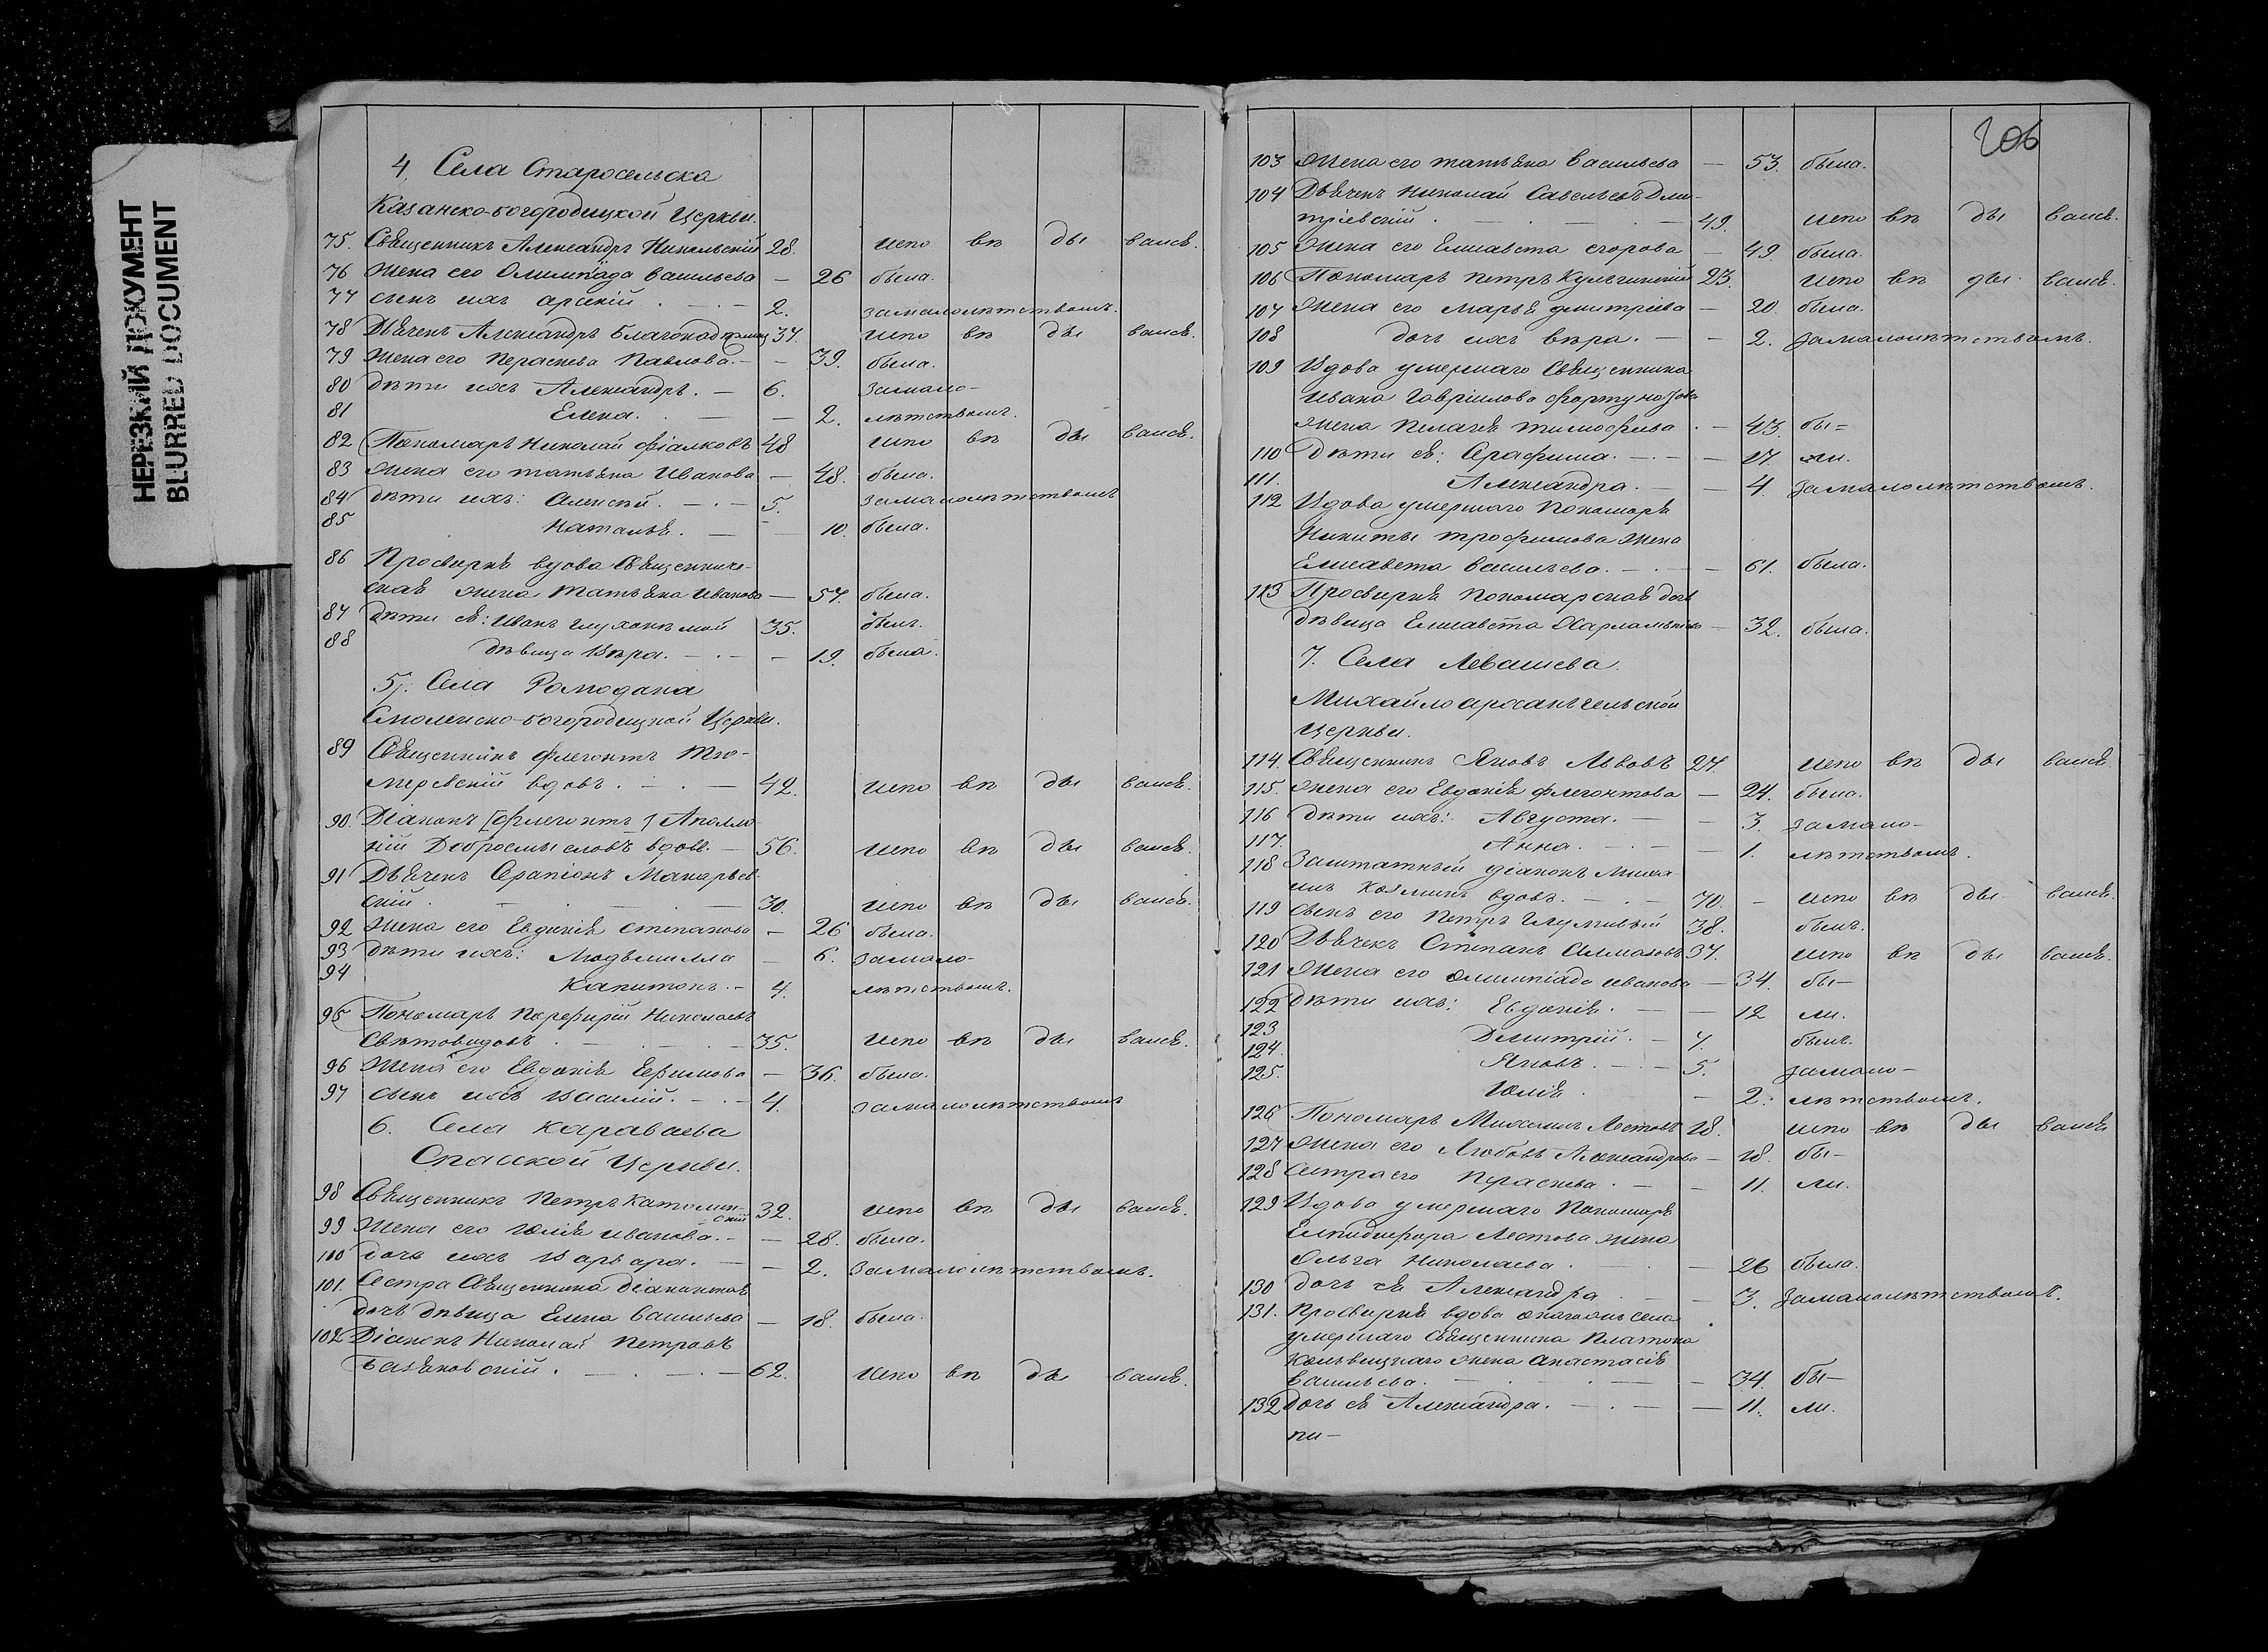 НЕРЕЗКИЙ ДОКУМЕНТ
BLURRED DOCUMENT
4. Села Старосельска
Казанско-Богородицкой Церкви.
75. Священникъ Александръ Никольскій 28. испо вѣ ды вался.
76 Жена его Олимпіада Васильева — 26 была.
77 сынъ ихъ Арсеній . — . — 2. за малолѣтствомъ.
78 Дьячекъ Александръ 37. испо вѣ ды вался.
79 Жена его Параскева Павлова. — — 39. была.
80 дѣти ихъ Александръ. — 6. за мало-
81 Елена. — — 2. лѣтствомъ.
82 Пономарь Николай Фіалковъ 48 испо вѣ ды вался.
83 Жена его Татьяна Иванова — 48. была.
84 дѣти ихъ: Алексѣй. — . — 5. за малолѣтствомъ
85 Наталья. — — 10. была.
86 Просвирня вдова Священниче-
ская жена Татьяна Иванова — 57. была.
87 дѣти ея: Иванъ глухонѣмой 35. былъ.
88 дѣвица Вѣра. — . — — 19. была.
5. Села Ромодана
Смоленско-Богородицкой Церкви.
89 Священникъ Флегонтъ Тю-
меревскій вдовъ. — . — 42. испо вѣ ды вался.
90. Діаконъ [Флегонтъ] Аполло-
ній Добросмысловъ вдовъ. — 56. испо вѣ ды вался.
91 Дьячекъ Серапіонъ Макарьев-
скій . — . — 30. испо вѣ ды вался.
92 Жена его Евдокія Степанова — 26 была.
93 дѣти ихъ: Людьмилла — 6. за мало-
94 Капитонъ. — 4. лѣтствомъ.
95 Пономарь Порфирій Николаевъ
Свѣтовидовъ . — . — 35. испо вѣ ды вался.
96 Жена его Евдокія Ефимова — 36. была.
97 сынъ ихъ Василій. — . — 4. за малолѣтствомъ
6. Села Караваева
Спасской Церкви.
98 Священникъ Петръ Католин-
скій 32. испо вѣ ды вался.
99 Жена его Юлія Иванова. — — 28. была.
100 дочь ихъ Варвара. — — 2. за малолѣтствомъ.
101. Сестра Священника діаконская
дочь дѣвица Елена Васильева — 18. была.
102 Діаконъ Николай Петровъ
Базяковскій . — . — . — 62. испо вѣ ды вался.
206
103 Жена его Татьяна Васильева — 53. была.
104 Дьячекъ Николай Савельевъ Дми-
тріевскій . — . — . — 49. испо вѣ ды вался.
105 Жена его Елисавета Егорова — 49. была.
106 Пономарь Петръ 23. испо вѣ ды вался.
107 Жена его Марья Дмитріева — 20. была.
108 дочь ихъ Вѣра. — — 2. за малолѣтствомъ.
109 Вдова умершаго Священника
Ивана Гаврилова Фортунатова
жена Пелагея Тимофеева . — 43. бы=
110 дѣти ея: Серафима. — . — — 17. ли.
111. Александра. — — 4. за малолѣтствомъ.
112 Вдова умершаго Пономаря
Никиты Трофимова жена
Елисавета Васильева. — . — — 61. была.
113 Просвирня Пономарская дочь
дѣвица Елисавета Харлампіева — 32. была.
7. Села Левашева.
Михайло Архангельской
Церкви.
114. Священникъ Яковъ Львовъ 27. испо вѣ ды вался.
115. Жена его Евдокія Флегонтова — 24. была.
116 дѣти ихъ: Августа. — — 3. за мало-
117. Анна. — . — — 1. лѣтствомъ.
118 Заштатный діаконъ Миха-
илъ Козминъ вдовъ. — . — 70. — испо вѣ ды вался.
119 сынъ его Петръ 38. былъ.
120 Дьячекъ Степанъ Алмазовъ 37. испо вѣ ды вался.
121 Жена его Олимпіада Иванова — 34. бы—
122 дѣти ихъ: Евдокія. — — 12 ли.
123 Дмитрій. — 7. былъ.
124. Яковъ. — . — 5. за мало-
125. Юлія . — 2. лѣтствомъ.
126 Пономарь Михаилъ Лестовъ 18. испо вѣ ды вался
127 Жена его Любовь Александрова — 18. бы—
128 Сестра его Параскева. — — 11. ли.
129 Вдова умершаго Пономаря
Елпидифора Лестова жена
Ольга Николаева . — . — — 26 была.
130 дочь ея Александра — — 3. за малолѣтствомъ.
131. Просвирня вдова села
умершаго Священника Платона
жена Анастасія
Васильева. — . — . — — 34. бы—
132 дочь ея Александра. — . — — 11. ли.
пи—